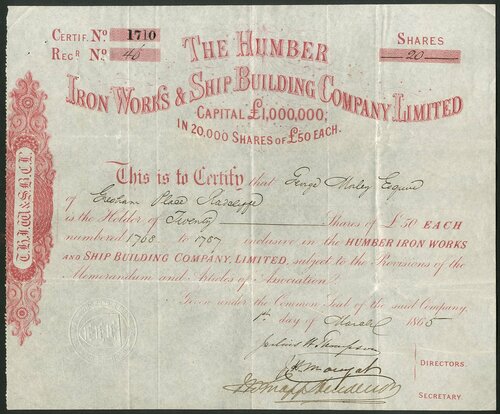 CERTIF. No 1710
REGR No 46
SHARES
20
THE HUMBER
IRON WORKS & SHIP BUILDING COMPANY LIMITED
CAPITAL £1,000,000;
IN 20,000 SHARES OF £50 EACH.
T.H.I.W. & S.B.C.L.
This is to Certify that George Morley Esquire
of Place Radcliffe
is the Holder of Twenty Shares of £50 EACH
numbered 1768 to 1787 inclusive in the HUMBER IRON WORKS
AND SHIP BUILDING COMPANY, LIMITED, subject to the Provisions of the
Memorandum and Articles of Association.
Given under the Common Seal of the said Company,
1st day of March 1865
Thompson
DIRECTORS.
Henderson
SECRETARY